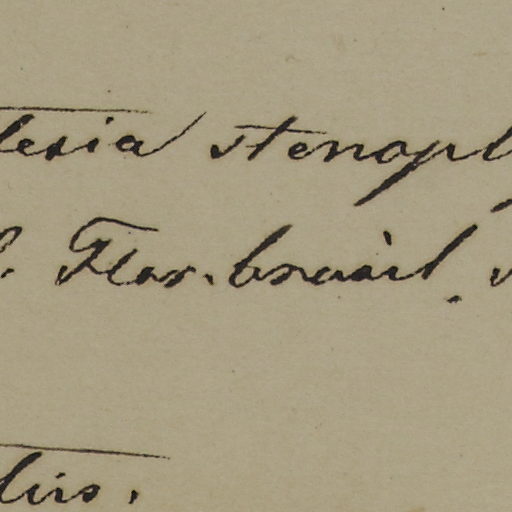 lesia stenop
Flor. brasil.